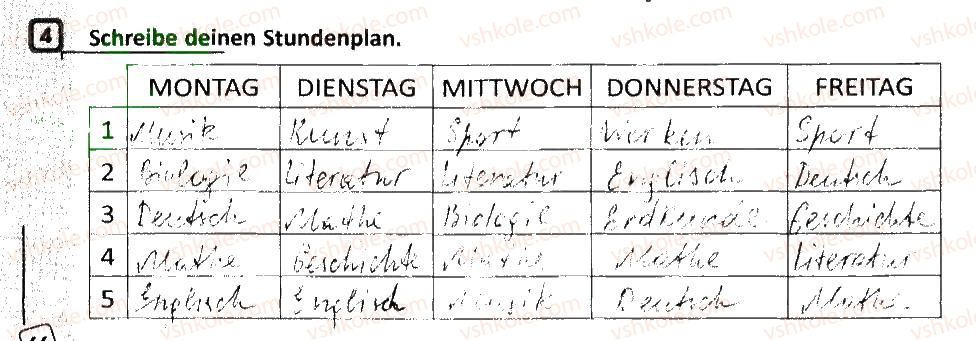 4 Schreibe deinen Stundenplan.
MONTAG DIENSTAG MITTWOCH DONNERSTAG FREITAG
1 Musik Kunst Sport Werken Sport
2 Biologie Literatur Literatur Englisch Deutsch
3 Deutsch Mathe Biologie Erdkunde Geschichte
4 Mathe Geschichte Mathe Mathe Literatur
5 Englisch Englisch Musik Deutsch Mathe.